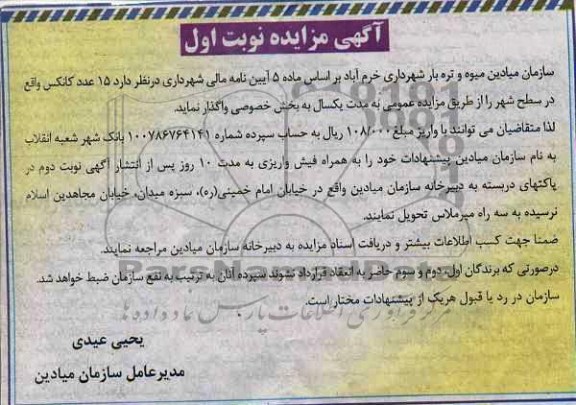 آگهی مزایده نوبت اول
سازمان میادین میوه و تره بار شهرداری خرم آباد بر اساس ماده ۵ آیین نامه مالی شهرداری درنظر دارد ۱۵ عدد کانکس واقع
در سطح شهر را از طریق مزایده عمومی به مدت یکسال به بخش خصوصی واگذار نماید.
لذا متقاضیان می توانند با واریز مبلغ ۱۰۸/۰۰۰ ریال به حساب سپرده شماره ۱۰۰۷۸۶۷۶۴۱۴۱ بانک شهر شعبه انقلاب
به نام سازمان میادین پیشنهادات خود را به همراه فیش واریزی به مدت ۱۰ روز پس از انتشار آگهی نوبت دوم در
پاکتهای دربسته به دبیرخانه سازمان میادین واقع در خیابان امام خمینی(ره)، سبزه میدان، خیابان مجاهدین اسلام
نرسیده به سه راه میرملاس تحویل نمایند.
ضمنا جهت کسب اطلاعات بیشتر و دریافت اسناد مزایده به دبیرخانه سازمان میادین مراجعه نمایند.
درصورتی که برندگان اول، دوم و سوم حاضر به انعقاد قرارداد نشوند سپرده آنان به ترتیب به نفع سازمان ضبط خواهد شد.
سازمان در رد یا قبول هریک از پیشنهادات مختار است.
یحیی عیدی
مدیرعامل سازمان میادین